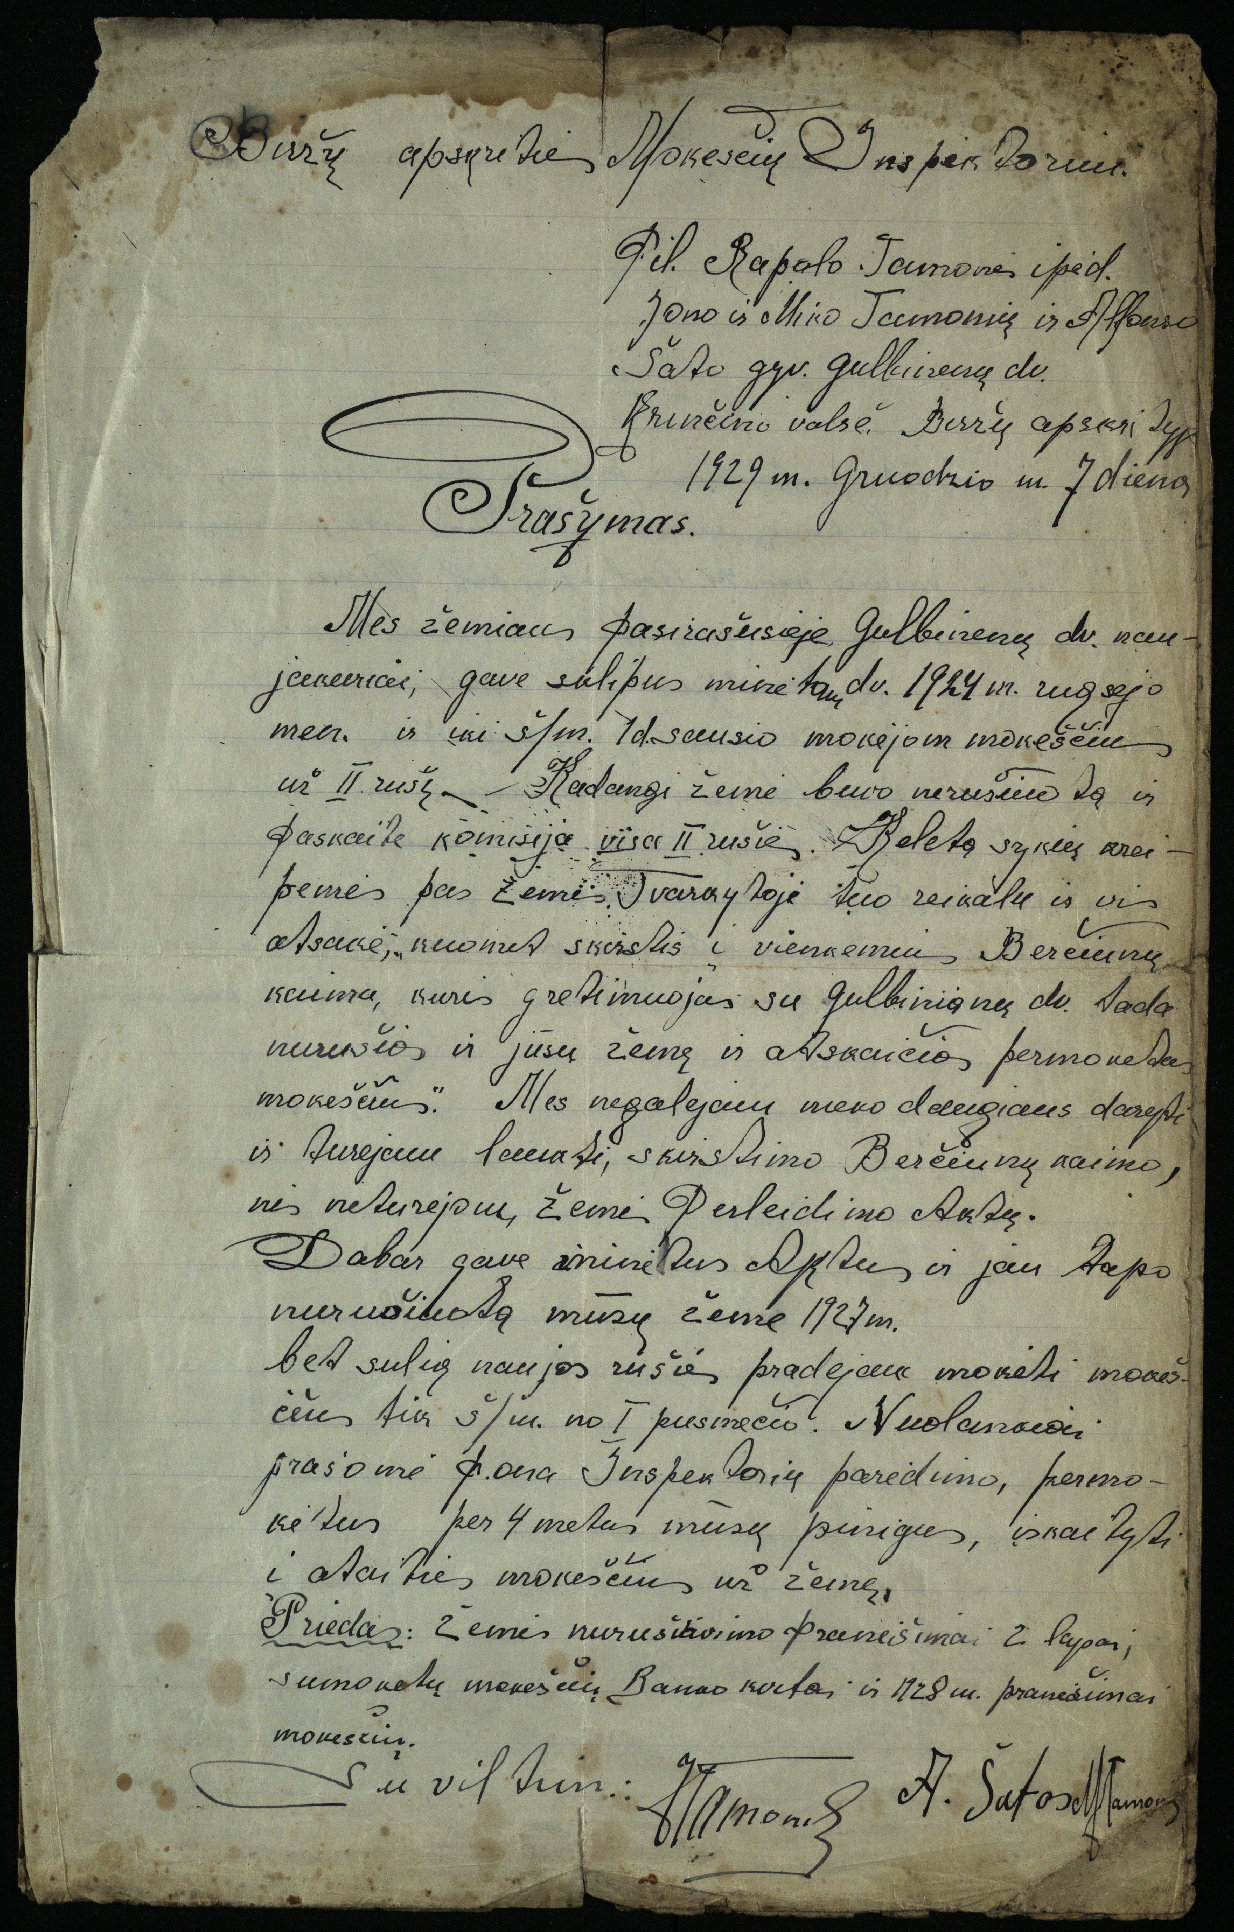 Biržų apskrities Mokesčių Inspektoriui.
Pil. Rapolo Tamonies įpėd.
Jono ir Miko Tamonių ir Alfonso
Šato gyv. Gulbinenų dv.
Krinčino valsč. Biržų apskrityje
1929 m. Gruodzio m. 7 dieną
Prašymas.
Mes žemiaus pasirašusieje Gulbinenų dv. nau-
jakuriai, gavę sklipus minėtam dv. 1924 m. rugsejo
men. ir iki š/m. 1d. sausio mokėjom mokesčius
už II rušį – Kadangi žemė buvo nerušiuotą ir
paskaitė komisija visa II rušies. Keletą sykių krei-
pemės pas Žemės Tvarkytoje tuo reikalu ir vis
atsakė, „kuomet skirstis į vienkemius Berčiunų
kaima, kuris gretimuojas su Gulbinianų dv. tada
nurušios ir jūsų žemę ir atskaičios permoketus
mokesčius." Mes negalejam nieko daugiaus daryti
ir turejom laukti, skirstimo Berčiunų kaimo,
nes neturejom, Žemės Perleidimo Aktų.
Dabar gavę minėtus Aktus ir jau tapo
nurušiuotą mūsų žemė 1927 m.
bet sulig naujos rušies pradejom mokėti mokes-
čius tik š/m. no I pusmečio. Nuolankiai
prašome p.ona Inspektorių parėdimo, permo-
kėtus per 4 metus mūsų pinigus, iskaityti
i ateities mokesčius už žemę.
Priedas: Žemės nurušiavimo pranešimai 2 lapai,
sumokėtų mokesčių Banko kvitai ir 1928 m. pranešimai
mokesčių.
Su viltim:
JTamonis A. Šatos MTamonis